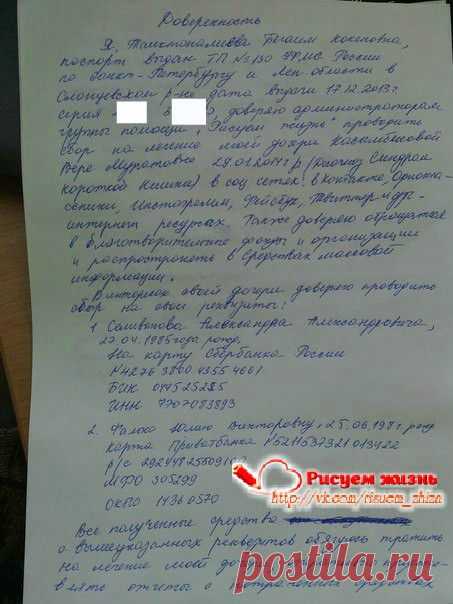 Доверенность
Я, Токтоналиева Бегаим Кокеновна,
паспорт выдан ТП №130 УФМС России
по Санкт-Петербургу и Лен. области в
Сланцевском р-не дата выдачи 17.12.2013г.
серия доверяю администраторам
группы помощи "Рисуем жизнь" проводить
сбор на лечение моей дочери Касымбековой
Вере Муратовне 28.01.2014г.р (диагноз Синдром
короткой кишки) в соц сетях: в Контакте, Однокла-
ссники, Инстаграмм, Фейсбук, Твиттер и др.
интернет ресурсах. Также доверяю обращаться
в благотворительные фонды и организации
и распространять в средствах массовой
информации.
В интересах своей дочери доверяю проводить
сбор на свои реквизиты:
1. Селиванова Александра Александровича,
27.04.1985 года рожд.
На карту Сбербанка России
N4276 3800 4355 4661
БИК 044525225
ИНН 7707083893
2. Юлию Викторовну, 25.06.198 г. рожд
карта Приватбанка №5211537321013422
Р/С
МФО 305299
ОКПО 14360570
Рисуем жизнь
http://vk.com/risuem_zhizn
Все полученные средства
с вышеуказанных реквизитов обязуюсь тратить
на лечение моей дочери
влять отчеты о средствах
postila.ru